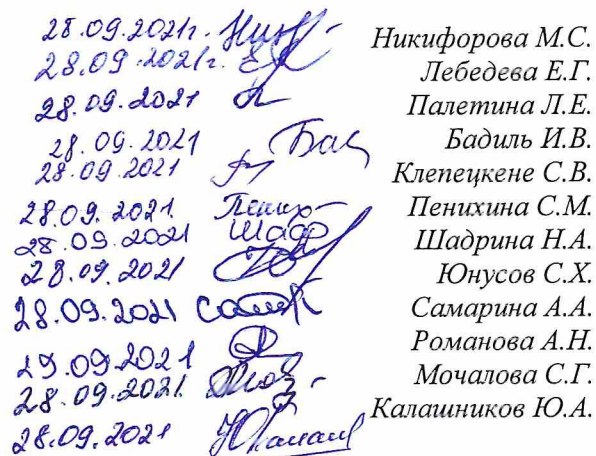 28.09.2021г. Никифорова М.С.
28.09.2021г. Лебедева Е.Г.
28.09.2021 Палетина Л.Е.
28.09.2021 Бад Бадиль И.В.
28.09.2021 Клепецкене С.В.
28.09.2021 Пених Пенихина С.М.
28.09.2021 Шадр Шадрина Н.А.
28.09.2021 Юнусов С.Х.
28.09.2021 Самарина А.А.
29.09.2021 Романова А.Н.
28.09.2021 Мочалова С.Г.
28.09.2021 Калашников Ю.А.